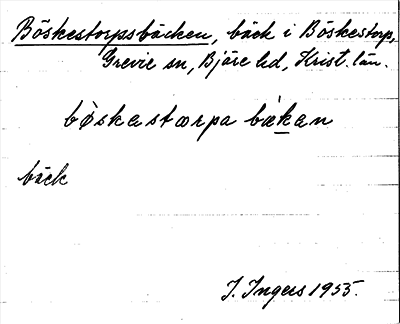 Böskestorpsbäcken, bäck i Böskestorp,
Grevie sn, Bjäre hd, Krist. län.
bö̀skastœrpa bækan
bäck
I. Ingers 1955.